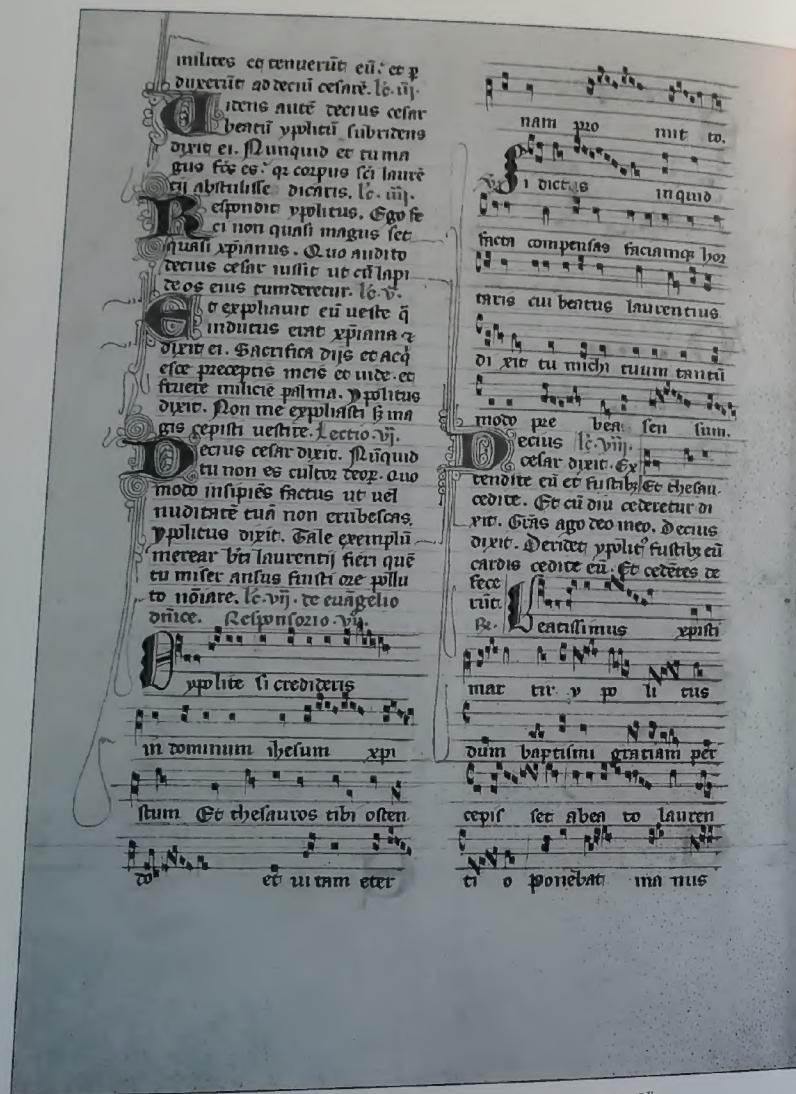 milites eq tenuerūt eū: et p
duxerūt ad deciū cesarē. lc̄. iij.
Uidens autē decius cesar
beatū ypolitū subridens
dixit ei. Nunquid et tu ma
gus fcs es: qr corpus sci laurē
tij abstulisse dicaris. lc̄. iiij.
Respondit ypolitus. Ego fe
ci non quasi magus set
quasi xpianus. Quo audito
decius cesar iussit ut cū lapi
de os eius tunderetur. lc̄. v.
Et expoliauit eū ueste q̄
indutus erat xpiana ⁊
dixit ei. Sacrifica dijs et acq̄
esce preceptis meis et uide. et
fruere milicie palma. ypolitus
dixit. Non me expoliasti sꝫ ma
gis cepisti uestire. Lectio. vj.
Decius cesar dixit. Nūquid
tu non es cultor deoꝝ. Quo
modo insipiēs factus ut uel
nuditatē tuā non erubescas.
Ypolitus dixit. Tale exemplū
merear bti laurentij fieri quē
tu miser ausus fuisti ore pollu
to nōiare. lc̄. vij. de euāgelio
dn̄ice. Responsorio. vij.
O
ypolite si credideris
in dominum ihesum xpi
stum Et thesauros tibi osten
do et uitam eter
nam pro mit to.
Si dictis inquid
facta compensas faciamqꝫ hor
taris cui beatus laurentius
di xit tu michi tuum tantū
modo pre bea sen sum.
Decius lc̄. viij.
cesar dixit. Ex
tendite eū et fustibꝫ Et thesau.
cedite. Et cū diu cederetur di
xit. Grās ago deo meo. Decius
dixit. Deridet ypolitꝰ fustibꝫ eū
cardis cedite eū. Et cedētes de
fece
rūt.
Rc. Beatissimus xpisti
mar tir y po li tus
dum baptismi gratiam per
cepis set abea to lauren
ti o ponebat ma nus